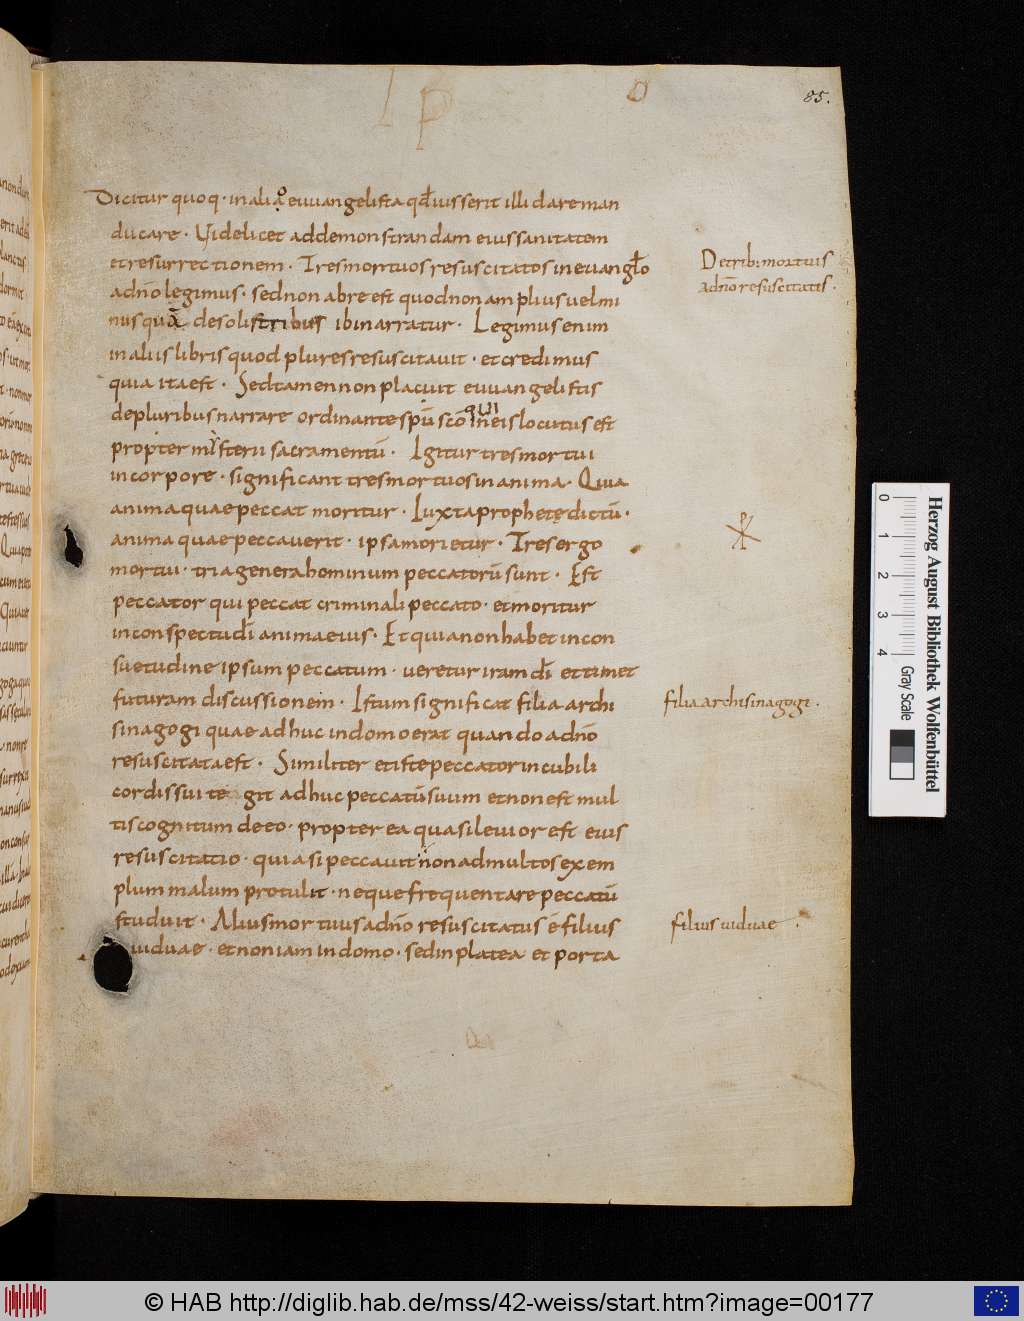 85.
Dicitur quoq· in alio euuangelista qđ iusserit illi dare man
ducare · Videlicet ad demonstrandam eius sanitatem
et resurrectionem · Tres mortuos resuscitatos in euangło
De trib: mortuis
a dño resuscitatis ·
a dño legimus · sed non ab re est quod non amplius uel mi
nus quā de solis tribus ibi narratur · Legimus enim
in aliis libris quod plures resuscitauit · et credimus
quia ita est · Sed tamen non placuit euuangelistis
de pluribus narrare ordinante spū scō qui in eis locutus est
propter misterii sacramentū · Igitur tres mortui
in corpore · significant tres mortuos in anima · Quia
anima quae peccat moritur · Iuxta prophete dictū ·
anima quae peccauerit · ipsa morietur · Tres ergo
mortui · tria genera hominum peccatorū sunt · Est
peccator qui peccat criminali peccato · et moritur
in conspectu dī anima eius · Et quia non habet in con
suetudine ipsum peccatum · ueretur iram dī et timet
futuram discussionem · Istum significat filia archi
filia archisinagogi ·
sinagogi quae adhuc in domo erat quando a dño
resuscitata est · Similiter et iste peccator in cubili
cordis sui tegit adhuc peccatū suum et non est mul
tis cognitum de eo · propter ea quasi leuior est eius
resuscitatio · quia si peccauit non ad multos exem
plum malum protulit · neque frequentare peccatū
studuit · Alius mortuus a dño resuscitatus ē filius
filius uiduae ·
uiduae · et non iam in domo · sed in platea et porta
Herzog August Bibliothek Wolfenbüttel
Gray Scale
0 1 2 3 4
© HAB http://diglib.hab.de/mss/42-weiss/start.htm?image=00177